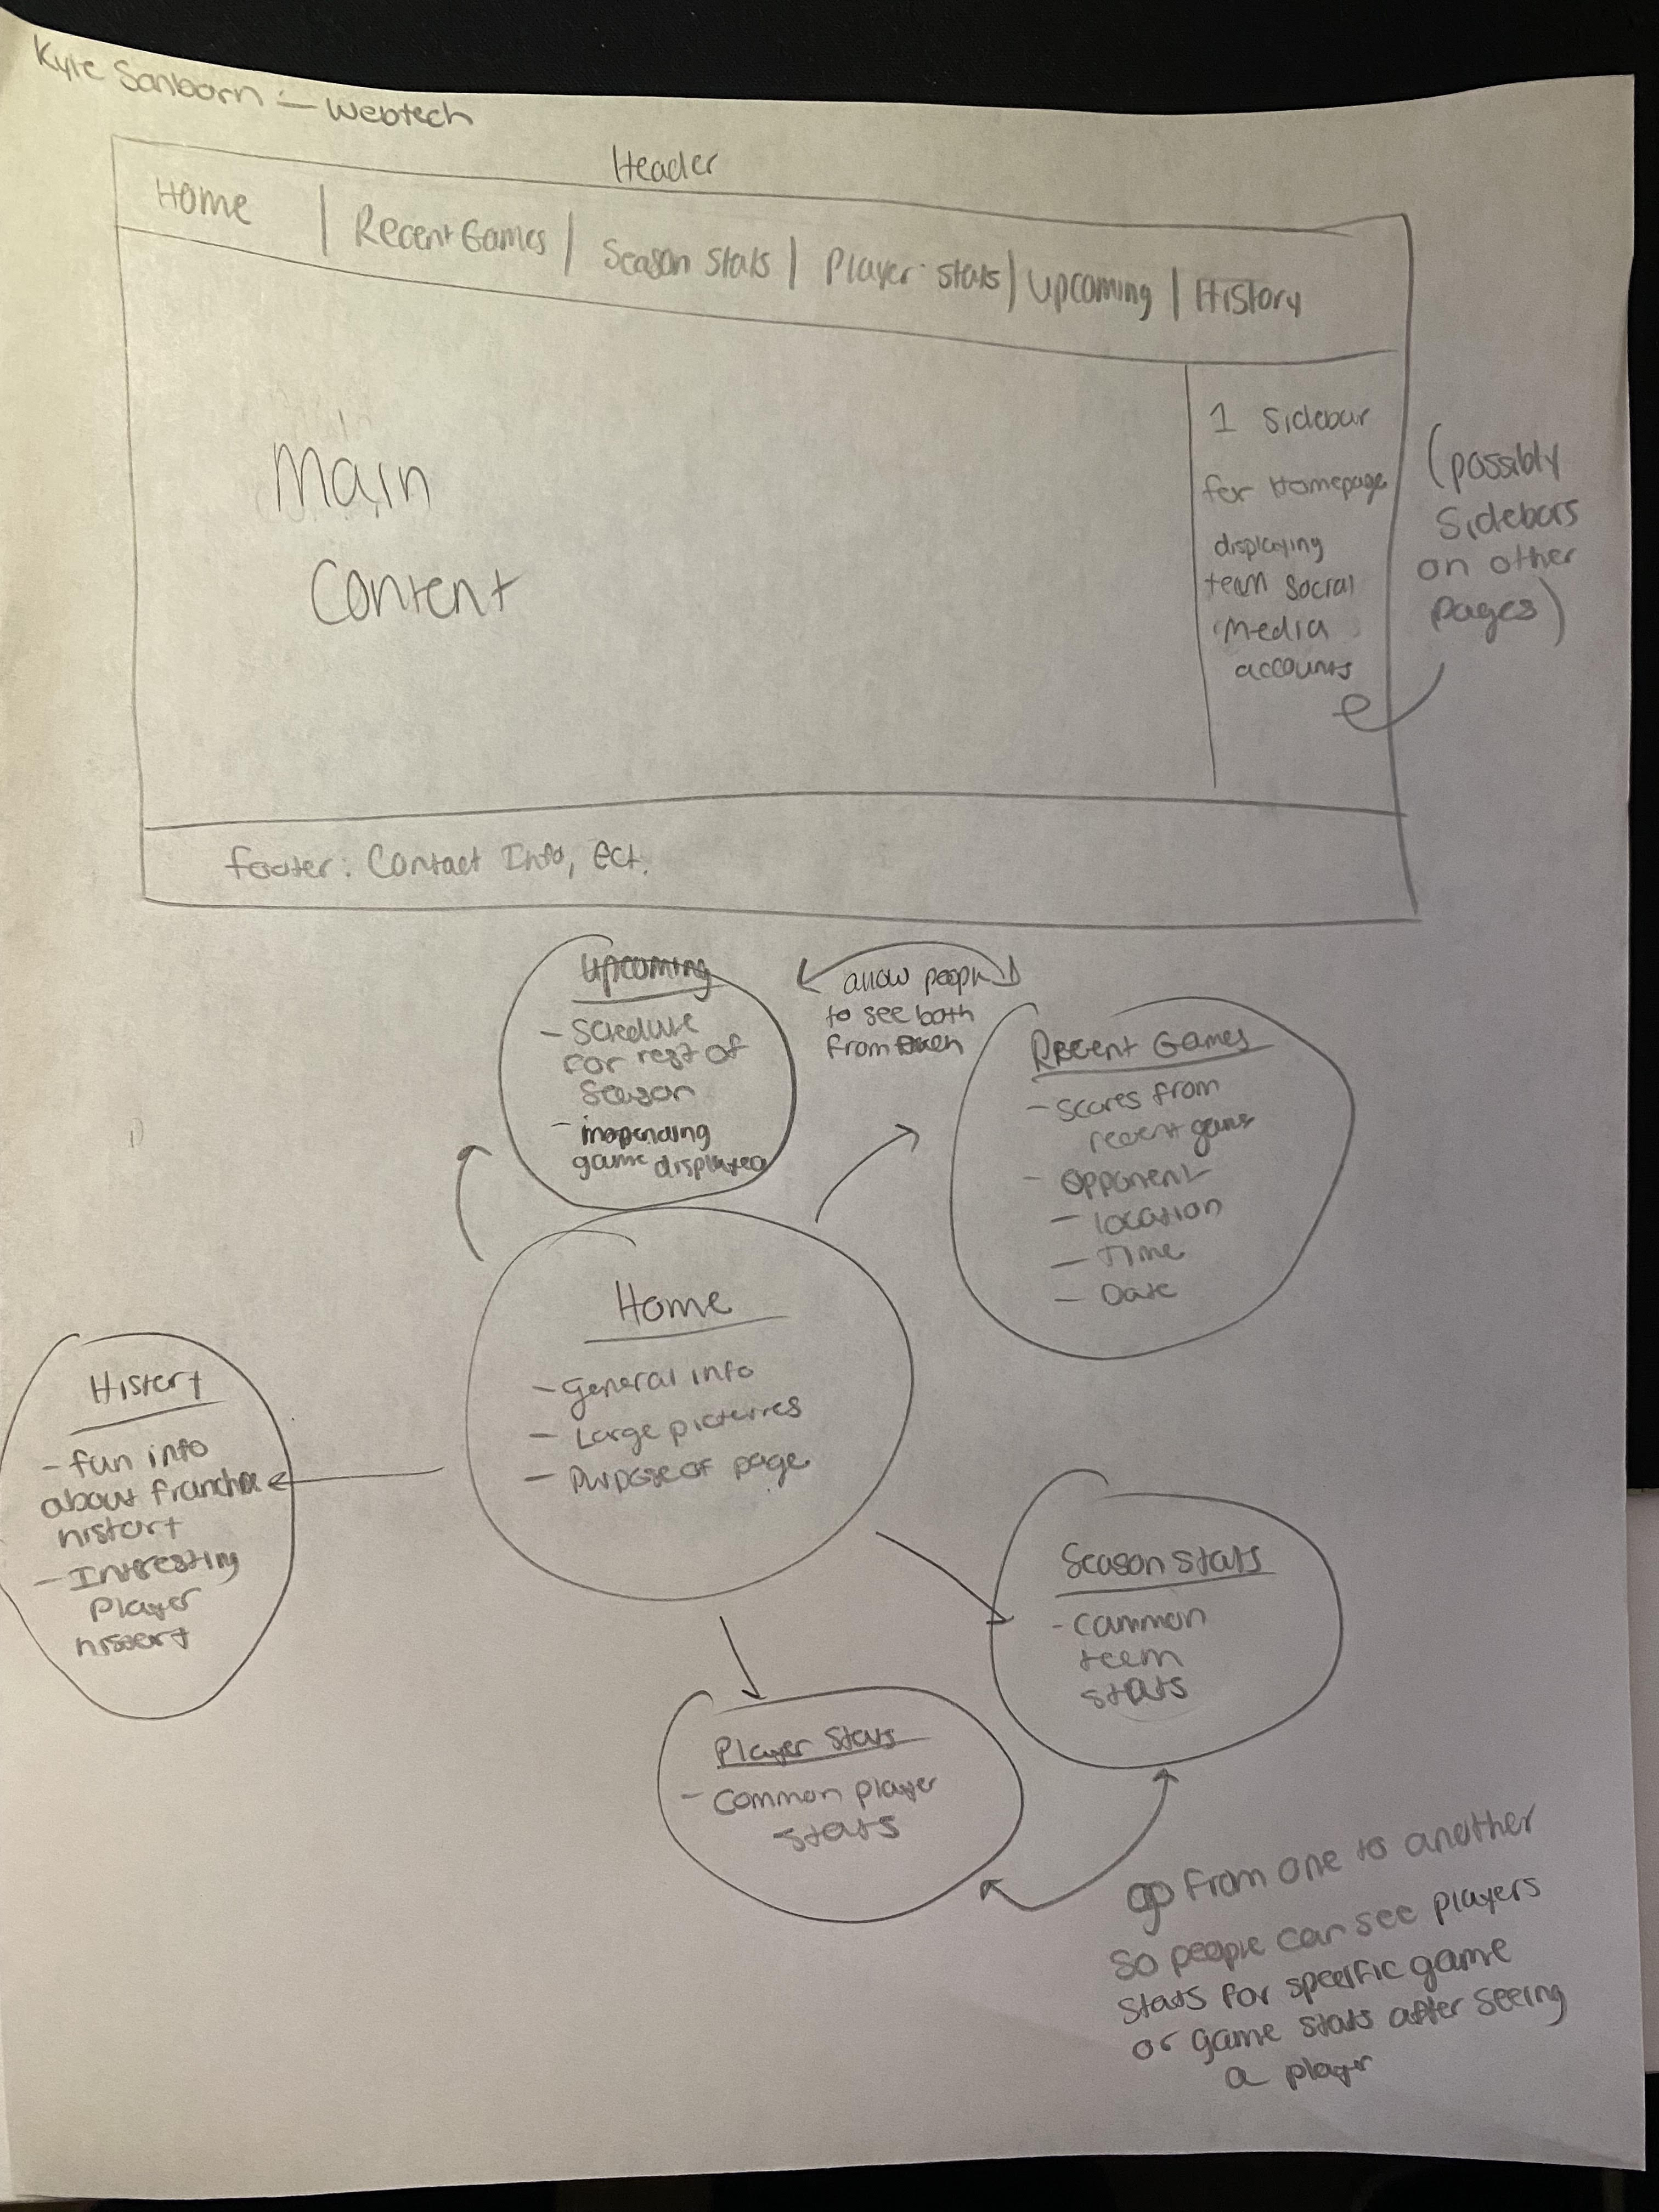 Kyle Sanborn — Webtech
Header
Home | Recent Games | Season Stats | Player Stats | Upcoming | History
Main
Content
1 Sidebar
for Homepage
displaying
team Social
Media
accounts
(possibly
Sidebars
on other
pages)
footer: Contact Info, Ect.
Upcoming
- Schedule
for rest of
Season
- inpending
game displayed
allow people
to see both
from
Recent Games
- Scores from
recent games
- Opponent
- location
- Time
- Date
Home
- General info
- Large pictures
- Purpose of page
History
- fun info
about franchise
history
- Interesting
Player
history
Season Stats
- Common
team
stats
Player Stats
- Common player
stats
go from one to another
So people can see players
stats for specific game
or game stats after seeing
a player